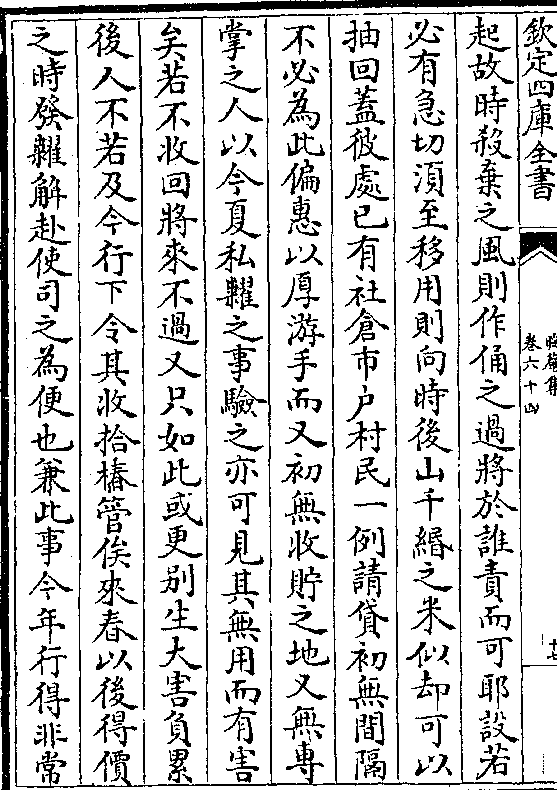 欽定四庫全書
晦菴集
卷六十四
起故時殺棄之風則作俑之過將於誰責而可耶設若
必有急切須至移用則向時後山千緡之米似却可以
抽回蓋彼處已有社倉市户村民一例請貸初無間隔
不必為此偏惠以厚游手而又初無收貯之地又無專
掌之人以今夏私糶之事驗之亦可見其無用而有害
矣若不收回將來不過又只如此或更别生大害負累
後人不若及今行下令其收拾樁管俟來春以後得價
之時發糶解赴使司之為便也兼此事今年行得非常